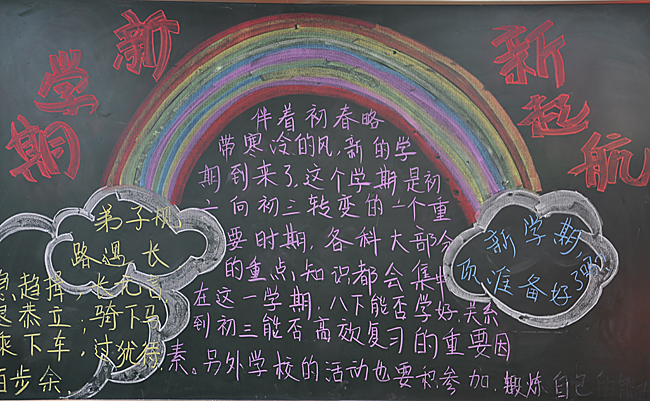 新学期
新起航
伴着初春略
带寒冷的风,新的学
期到来了,这个学期是初
二向初三转变的一个重
要时期,各科大部分
的重点知识都会集中
在这一学期,八下能否学好,关系
到初三能否高效复习的重要因
素。另外学校的活动也要积参加,锻炼自己的
弟子规
路遇长
疾趋揖,长无言
退恭立,骑下马
乘下车,过犹待
百步余
新学期,
你准备好了吗